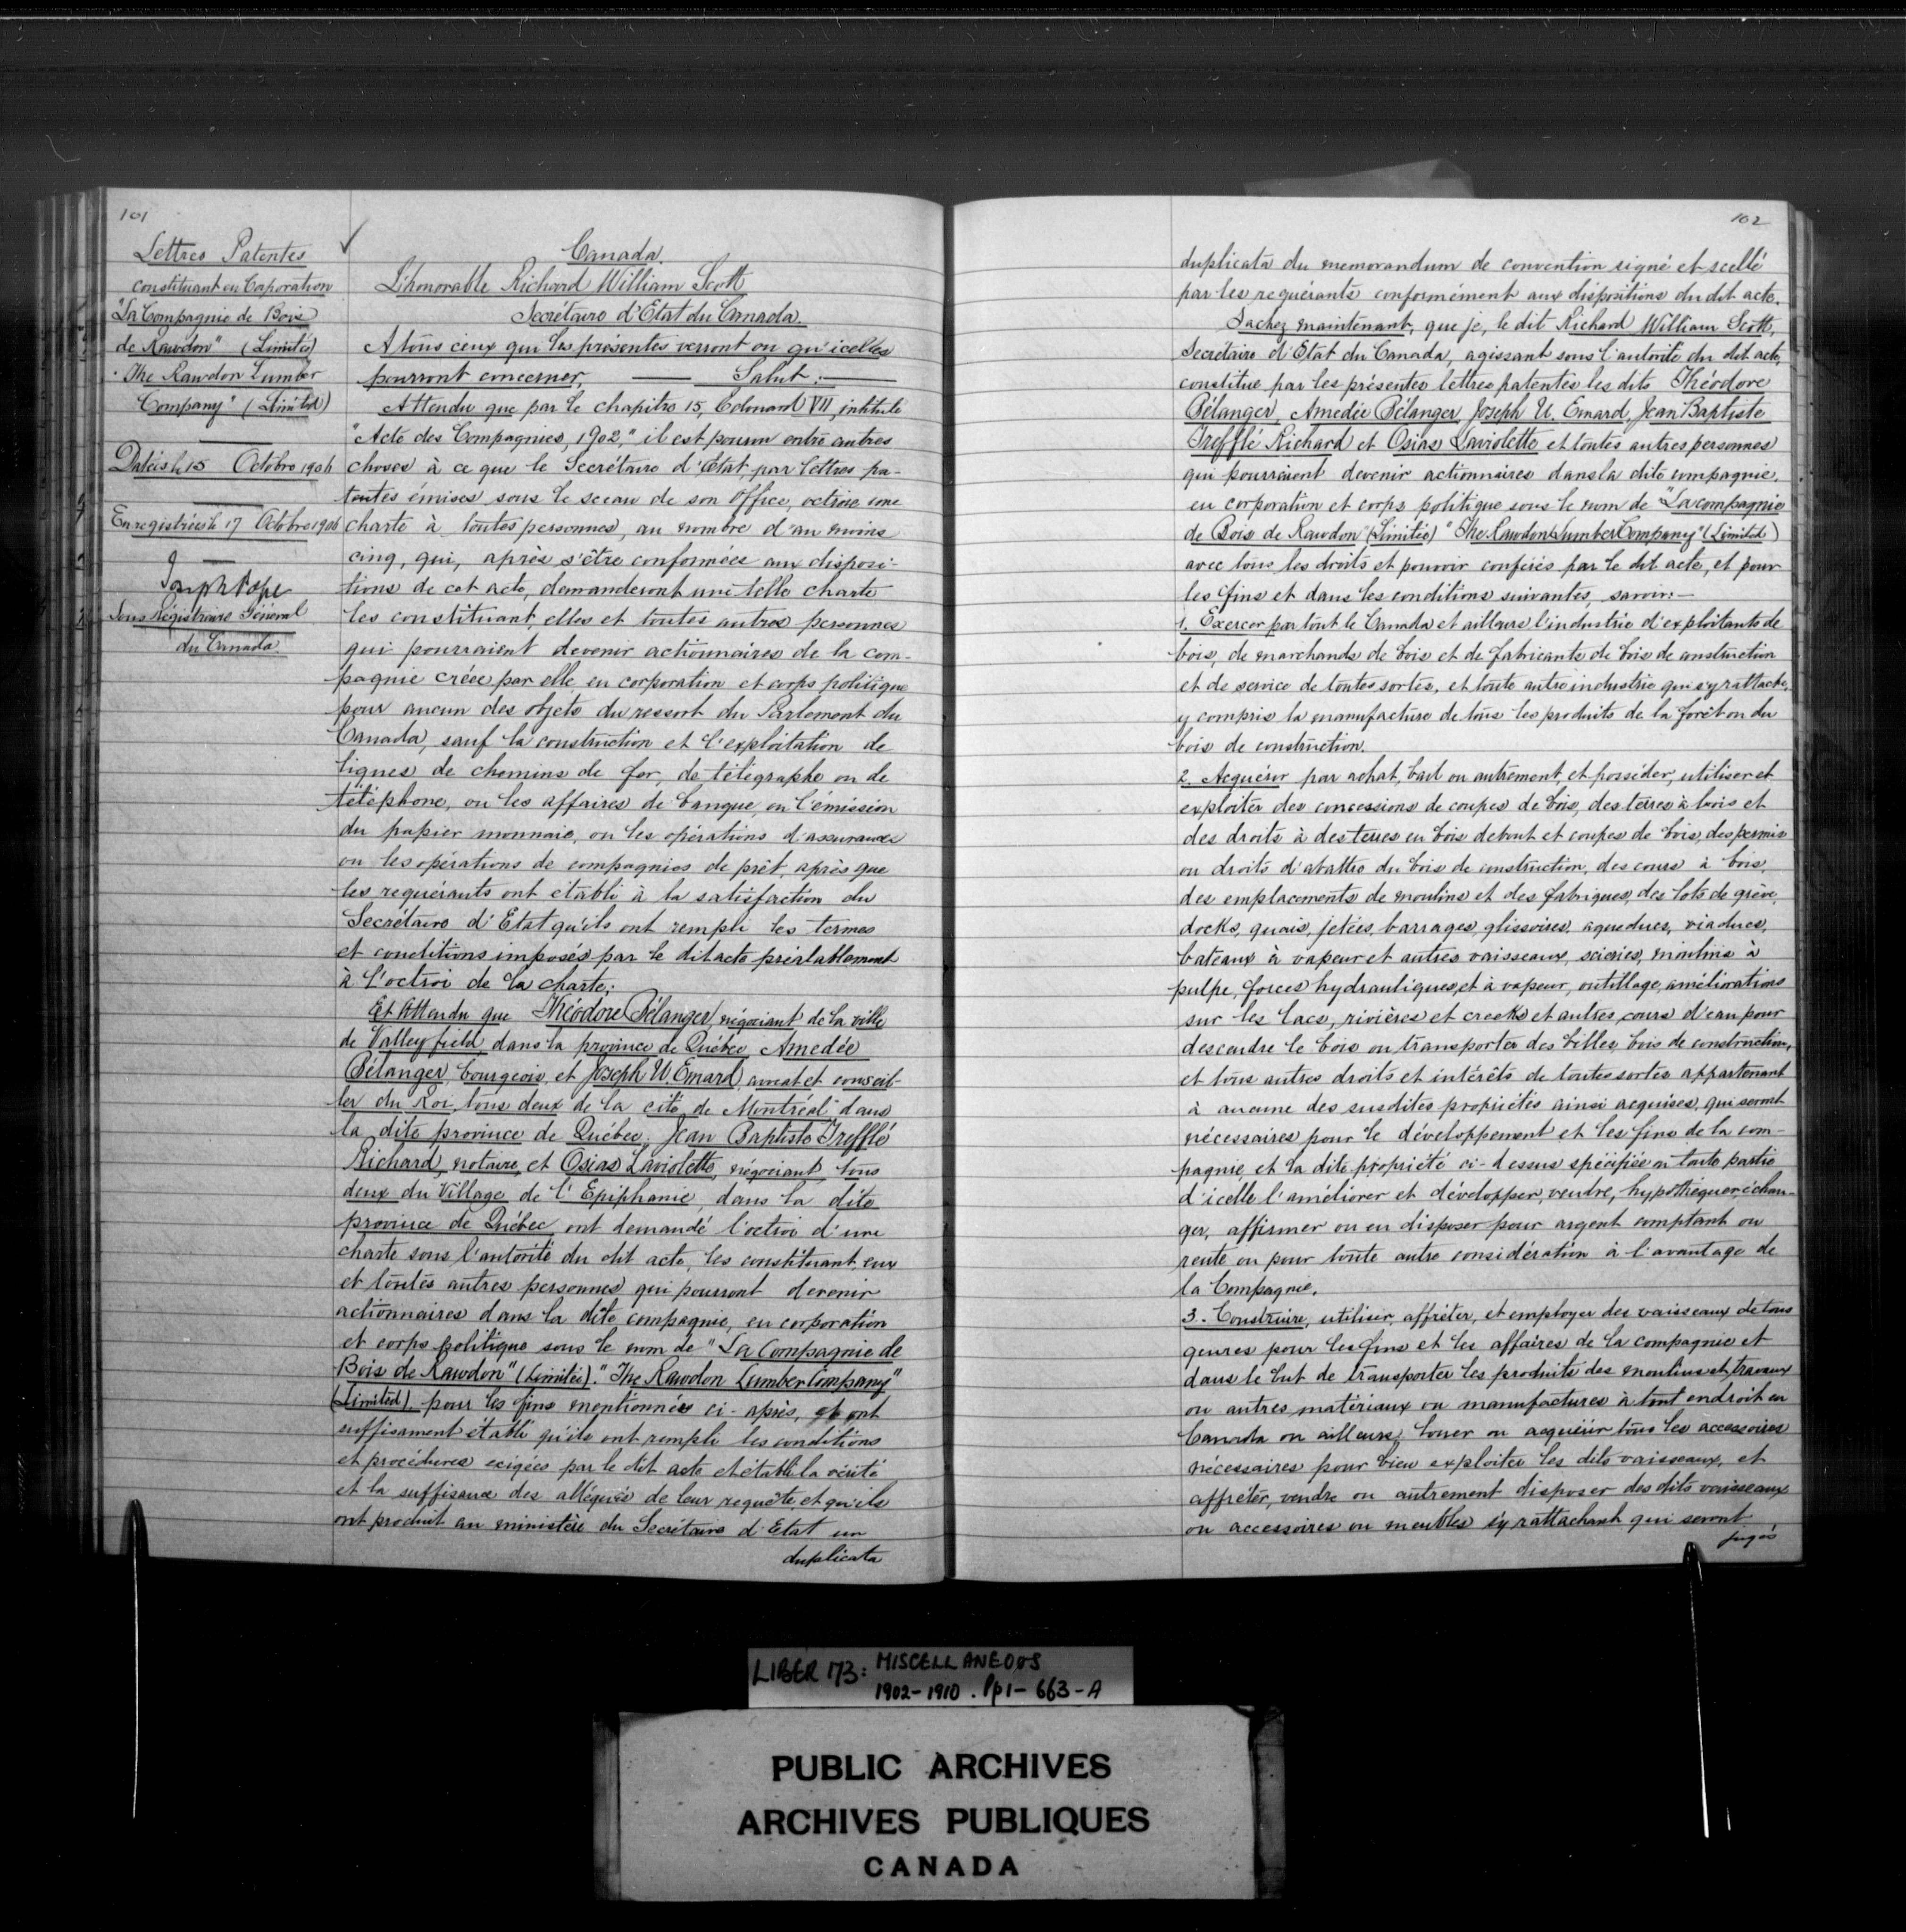 101
Lettres Patentes
constituant en Corporation
"La Compagnie de Bois
de Rawdon" (Limitée)
"The Rawdon Lumber
Company" (Limited)
Datées le 15 Octobre
Enregistrées le 17 Octobre 1906
Joseph Pope
Sous Régistraire Général
du Canada.
Canada.
L'honorable Richard William Scott
Secrétaire d'Etat du Canada.
A tous ceux qui les présentes verront ou qu'icelles
pourront concerner, — Salut: —
Attendu que par le chapitre 15, Edouard VII, intitulé
"Acte des Compagnies, 1902," il est pourvu entre autres
choses à ce que le Secrétaire d'Etat, par lettres pa-
tentes émises sous le sceau de son office, octroie une
charte à toutes personnes, au nombre d'au moins
cinq, qui, après s'être conformées aux disposi-
tions de cet acte, demanderont une telle charte
les constituant, elles et toutes autres personnes
qui pourraient devenir actionnaires de la com-
pagnie créée par elle, en corporation et corps politique
pour aucun des objets du ressort du Parlement du
Canada, sauf la construction et l'exploitation de
lignes de chemins de fer, de télégraphe ou de
téléphone, ou les affaires de banque, ou l'émission
du papier monnaie, ou les opérations d'assurances
ou les opérations de compagnies de prêt, après que
les requérants ont établi à la satisfaction du
Secrétaire d'Etat qu'ils ont rempli les termes
et conditions imposés par le dit acte préalablement
à l'octroi de la charte;
Et Attendu que Théodore Bélanger, négociant de la ville
de Valleyfield, dans la province de Québec, Amedée
Bélanger, bourgeois, et Joseph U. Emard, avocat et conseil-
ler du Roi, tous deux de la cité de Montréal dans
la dite province de Québec; Jean Baptiste Trefflé
Richard, notaire, et Osias Laviolette, négociant, tous
deux du Village de l'Epiphanie, dans la dite
province de Québec, ont demandé l'octroi d'une
charte sous l'autorité du dit acte, les constituant, eux
et toutes autres personnes qui pourront devenir
actionnaires dans la dite compagnie, en corporation
et corps politique sous le nom de "La Compagnie de
Bois de Rawdon" (Limitée). "The Rawdon Lumber Company"
(Limited). pour les fins mentionnées ci-après, et ont
suffisament établi qu'ils ont rempli les conditions
et procédures exigées par le dit acte et établi la vérité
et la suffisance des allégués de leur requête, et qu'ils
ont produit au ministère du Secrétaire d'Etat un
duplicata
102
duplicata du memorandum de convention signé et scellé
par les requérants conformément aux dispositions du dit acte.
Sachez maintenant, que je, le dit Richard William Scott,
Secrétaire d'Etat du Canada, agissant sous l'autorité du dit acte,
constitue par les présentes lettres patentes les dits Théodore
Bélanger, Amedée Bélanger, Joseph U. Emard, Jean Baptiste
Trefflé Richard et Osias Laviolette et toutes autres personnes
qui pourraient devenir actionnaires dans la dite compagnie,
en corporation et corps politique sous le nom de "La compagnie
de Bois de Rawdon" (Limitée) "The Rawdon Lumber Company" (Limited)
avec tous les droits et pouvoir conférés par le dit acte, et pour
les fins et dans les conditions suivantes, savoir:—
1. Exercer par tout le Canada et ailleurs l'industrie d'exploitants de
bois, de marchands de bois et de fabricants de bois de construction
et de service de toutes sortes, et toute autre industrie qui s'y rattache,
y compris la manufacture de tous les produits de la forêt ou du
bois de construction.
2. Acquérir par achat, bail ou autrement, et posséder, utiliser et
exploiter des concessions de coupes de bois, des terres à bois et
des droits à des terres en bois debout et coupes de bois, des permis
ou droits d'abattre du bois de construction, des cours à bois,
des emplacements de moulins et des fabriques, des lots de grève,
docks, quais, jetées, barrages, glissoires, aqueducs, viaducs,
bateaux à vapeur et autres vaisseaux, scieries, moulins à
pulpe, forces hydrauliques, et à vapeur, outillage, améliorations
sur les lacs, rivières et creeks et autres cours d'eau pour
descendre le bois ou transporter des billes, bois de construction,
et tous autres droits et intérêts de toutes sortes appartenant
à aucune des susdites propriétés ainsi acquises, qui seront
nécessaires pour le développement et les fins de la com-
pagnie, et la dite propriété ci-dessus spécifiée ou toute partie
d'icelle l'améliorer et développer, vendre, hypothéquer, échan-
ger, affermer ou en disposer pour argent comptant ou
rente ou pour toute autre considération à l'avantage de
la Compagnie.
3. Construire, utiliser, affréter, et employer des vaisseaux de tous
genres pour les fins et les affaires de la compagnie et
dans le but de transporter les produits des moulins et travaux
ou autres matériaux ou manufactures à tout endroit en
Canada ou ailleurs; louer ou acquérir tous les accessoires
nécessaires pour bien exploiter les dits vaisseaux, et
affréter, vendre ou autrement disposer des dits vaisseaux
ou accessoires ou meubles s'y rattachant qui seront
jugés
LIBER 173: MISCELLANEOUS
1902-1910. Pp 1-663-A
PUBLIC ARCHIVES
ARCHIVES PUBLIQUES
CANADA